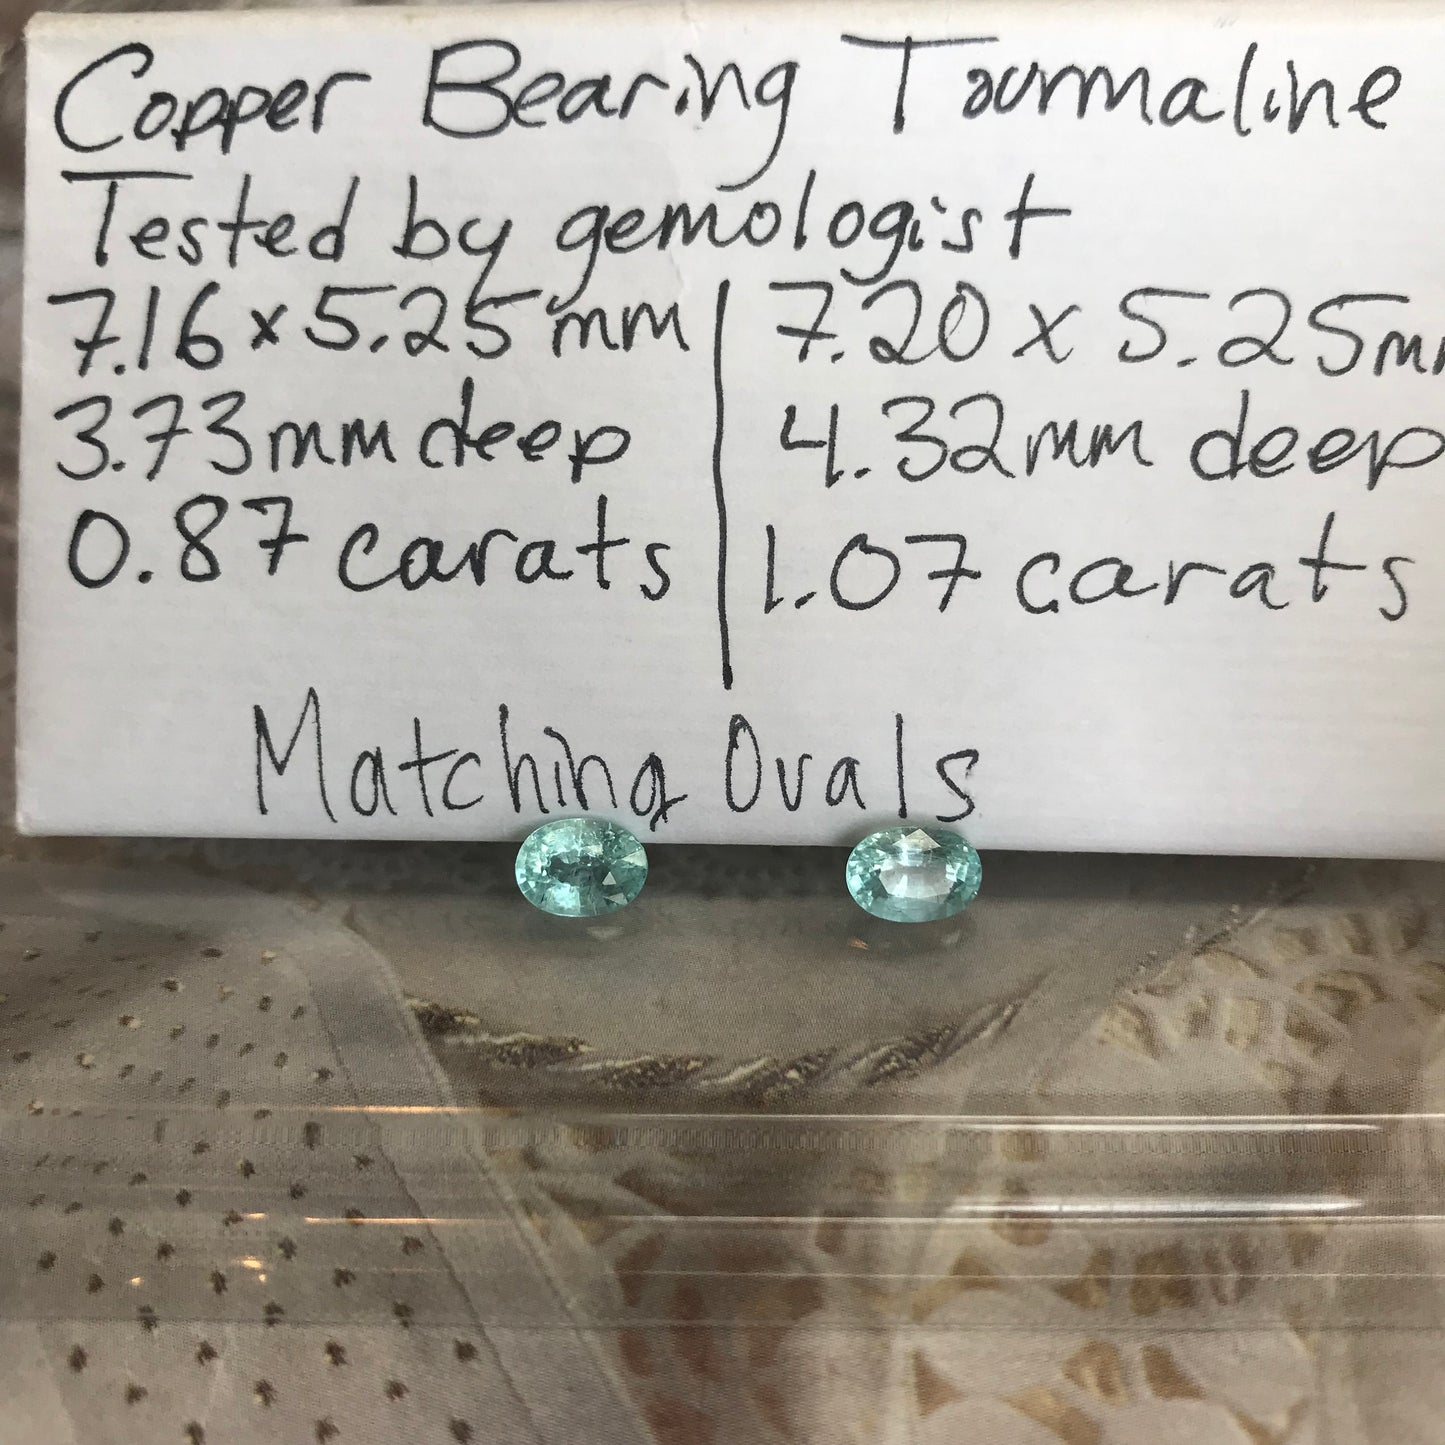 Copper Bearing Tourmaline
Tested by gemologist
7.16 x 5.25 mm | 7.20 x 5.25 mm
3.73 mm deep | 4.32 mm deep
0.87 carats | 1.07 carats
Matching Ovals